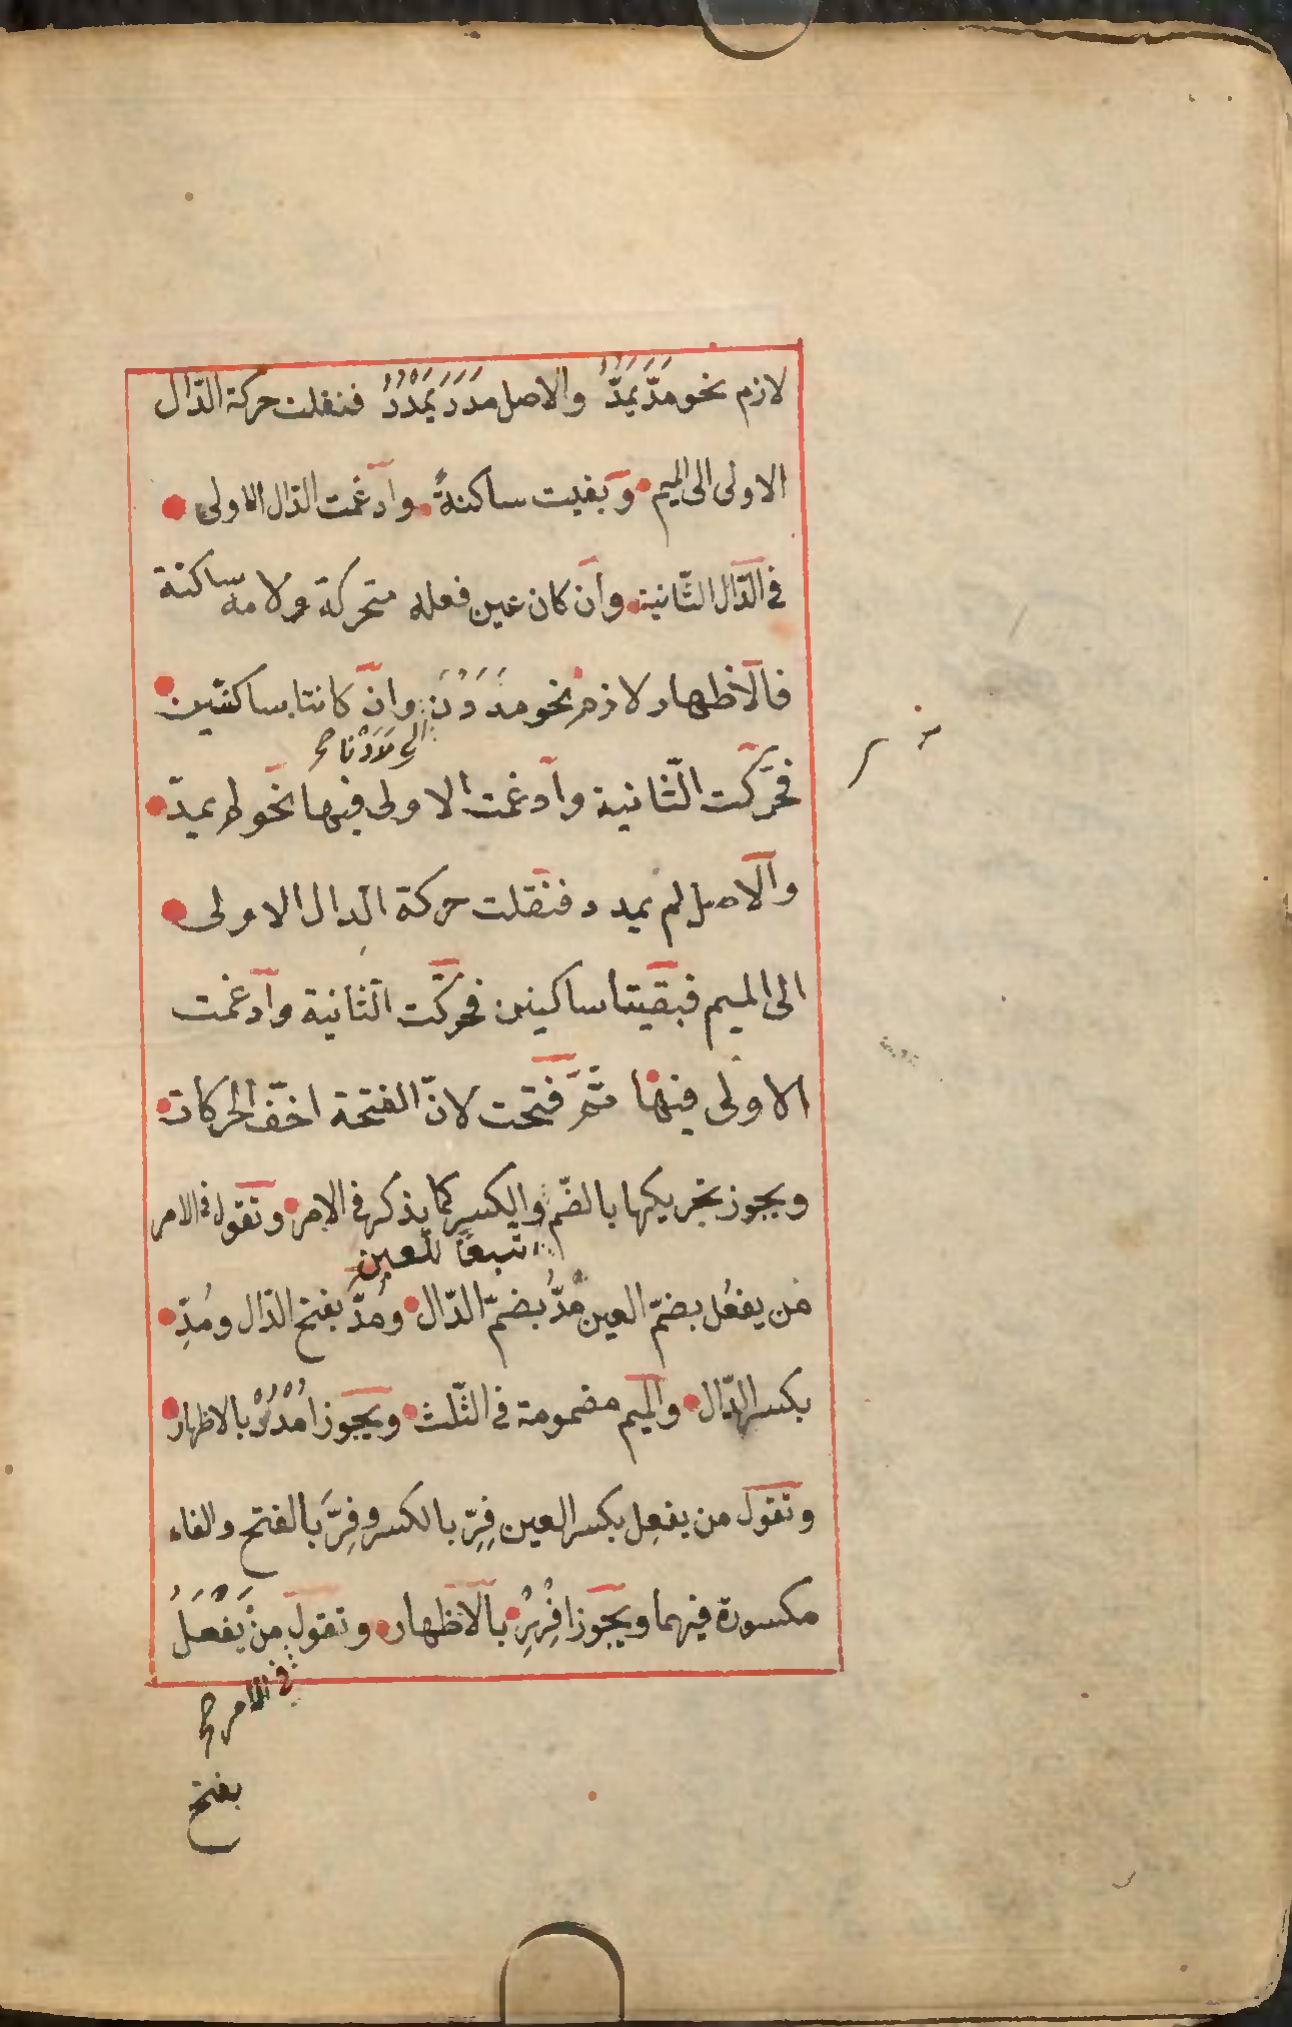 لازم نحو مَدَّ يَمُدُّ والاصل مَدَدَ يَمْدُدُ فنقلت حركة الدّال
الاولى الى الميم وبقيت ساكنةً وادغمت الدّال الاولى
فى الدّال الثّانية وان كان عين فعله متحركة ولامه ساكنة
فالاظهار لازم نحو مَدَدْنَ وان كانتا ساكنتين
الى مَدَدْنا صح
فحرّكت الثّانية وادغمت الاولى فيها نحو لم يمدّ
والاصل لم يمدد فنقلت حركة الدال الاولى
الى الميم فبقيتا ساكنين فحرّكت الثانية وادغمت
الاولى فيها ثمّ فتحت لانّ الفتحة اخفّ الحركات
ويجوز تحريكها بالضّم والكسر كما يذكر فى الامر وتقول فى الامر
تبعًا للعين
من يفعُل بضمّ العين مُدُّ بضمّ الدّال ومُدَّ بفتح الدّال ومُدِّ
بكسر الدّال والميم مضمومة فى الثّلث ويجوز اُمْدُدْ بالاظهار
وتقول من يفعِل بكسر العين فِرِّ بالكسر وفِرَّ بالفتح والفاء
مكسورة فيهما ويجوز اِفْرِرْ بالاظهار وتقول مِنْ يَفْعَلُ
فى الامر صح
بفتح